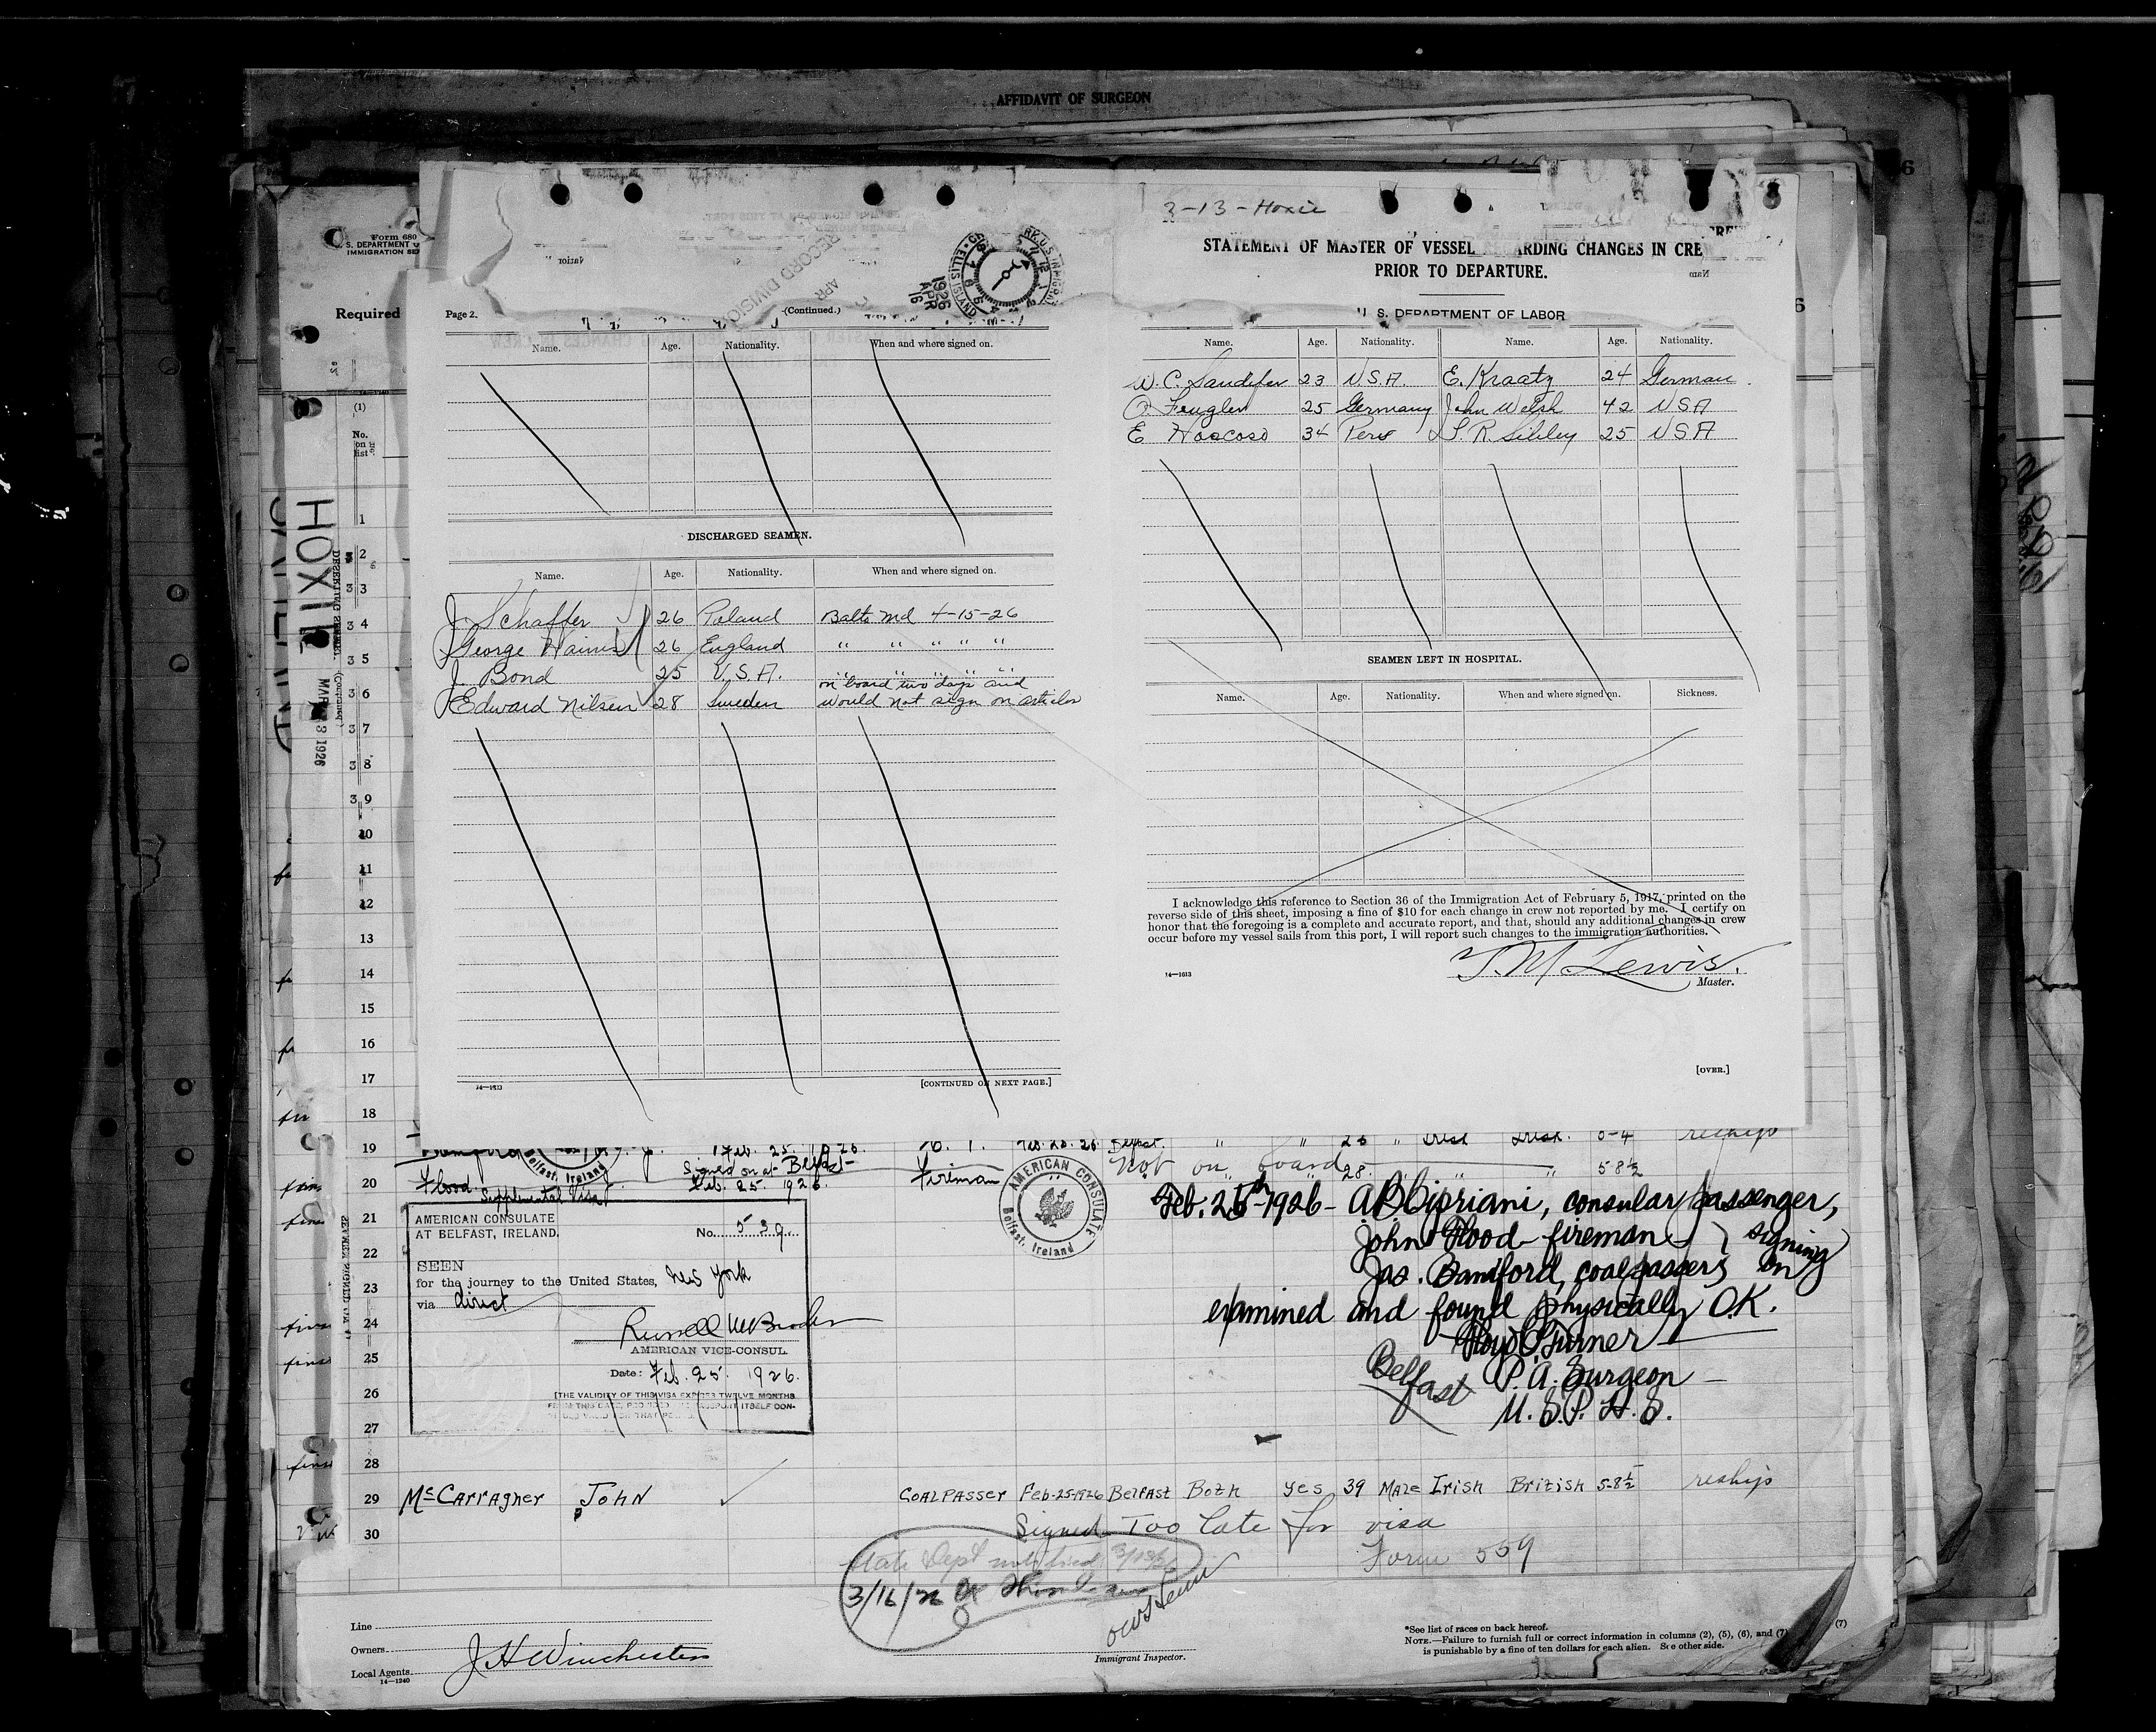 AFFIDAVIT OF SURGEON
Form 680
S. DEPARTMENT
IMMIGRATION
Required
(1)
No. on list
HOXIE
1926
3-13-Hoxie
STATEMENT OF MASTER OF VESSEL ARDING CHANGES IN CRE
PRIOR TO DEPARTURE.
U. S. DEPARTMENT OF LABOR
RECORD DIVISION
APR
ELLIS ISLAND
1926 APR 16
Page 2.
(Continued.)
Name. Age. Nationality. When and where signed on.
DISCHARGED SEAMEN.
Name. Age. Nationality. When and where signed on.
J. Schaffer 26 Poland Balto Md 4-15-26
George Haines 26 England " " " " "
J. Bond 25 U.S.A. " " " " "
on board two days and
Edward Nilsen 28 Sweden would not sign on articles
14—1613
[CONTINUED ON NEXT PAGE.]
Name. Age. Nationality. Name. Age. Nationality.
W. C. Sandifer 23 U.S.A. E. Kraatz 24 German
O Feugler 25 Germany John Welsh 42 USA
E Hoscoso 34 Peru R. Sibley 25 USA
SEAMEN LEFT IN HOSPITAL.
Name. Age. Nationality. When and where signed on. Sickness.
I acknowledge this reference to Section 36 of the Immigration Act of February 5, 1917, printed on the
reverse side of this sheet, imposing a fine of $10 for each change in crew not reported by me. I certify on
honor that the foregoing is a complete and accurate report, and that, should any additional changes in crew
occur before my vessel sails from this port, I will report such changes to the immigration authorities.
T. M. Lewis.
Master.
14—1613
[OVER.]
1
2
3 3
3 4
3 5
3 6
3 7
3 8
3 9
10
11
12
13
14
15
16
17
18
19 Feb. 25. 1926. Feb. 25. 26 Belfast. " " 23 " Irish Irish. 5-4 reship
20 Flood Signed on at Belfast Feb. 25. 1926. Fireman Not on board 28 " " 5-8½
Supplemental Visa
Belfast, Ireland
AMERICAN CONSULATE
Belfast, Ireland
21
22
23
24
25
26
27
28
AMERICAN CONSULATE
AT BELFAST, IRELAND.
No. 539.
SEEN
for the journey to the United States, New York
via direct
AMERICAN VICE-CONSUL.
Date: Feb. 25. 1926.
[THE VALIDITY OF THIS VISA EXPIRES TWELVE MONTHS
Feb. 25th-1926 - A B Cipriani, consular passenger,
John Flood - fireman } signing
Jas. Bamford, coalpassers on
examined and found physically O.K.
Floyd C. Turner
Belfast P. A. Surgeon
U. S. P. H. S.
29 McCarragher John COALPASSER Feb-25-1926 Belfast Both yes 39 Male Irish British 5-8½ reship
30 Signed Too late for visa
Form 559
State Dept notified 3/13/26
3/16/26
Line
Owners
Local Agents J H Winchester
14—1240
Immigrant Inspector.
*See list of races on back hereof.
NOTE.—Failure to furnish full or correct information in columns (2), (5), (6), and (7)
is punishable by a fine of ten dollars for each alien. See other side.
(7)